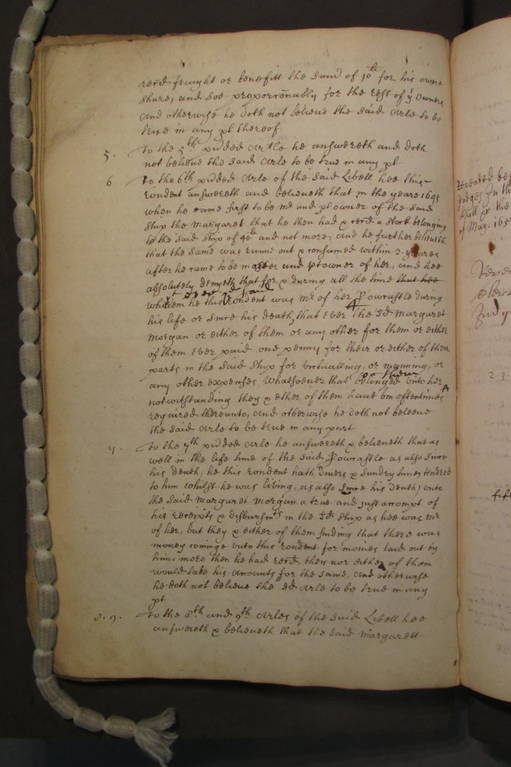 recd fraught or benefitt the sum of 10li for his owne
share, and soe proporconably for the rest of ye Owners
and otherwise he doth not beleeve the said Arle to be
true in any pt thereof
5. To the 5th pnded Arle he answereth and doth
not beleeve the said Arle to be true in any pt
6 To the 6th pnded Arle of the said Libell hee this
rondent answereth and beleeveth that in the yeare 1649
when he came first to be mr and pt owner of the said
Ship the Margaret that he then had & recd a stock belonging
to the said Ship of and not more, and he further
that the same was runne out & consumed within 2 yeares
after he came to be master and pt owner of her, and hee
absolutely denyeth that for & during all the time that hee
when he this Rondent was mr of her Powrastle during
his life or since his death, that ever the sd Margaret
Morgan or either of them or any other for them or either
of them ever paid one penny for their or either of their
parts in the said Ship for victualling, or manning, or
any other expenses whatsoever that belonged unto her
notwithstanding they & either of them have bin oftentimes
required thereunto, and otherwise he doth not beleeve
the said Arle to be true in any part
7 To the 7th pnded Arle he answereth & beleeveth that as
well in the life time of the said Powrastle as also since
his death, he this rondent hath divers & sundry times tendred
to him whilst he was living, as also since his death, unto
the said Margaret Morgan a true and just accompt of
his receipts & disbursmts in the sd Ship as hee was mr
of her, but they & either of them finding that there was
money comeing unto this rondent for monies laid out by
him more then he had recd they nor either of them
would take his accounts for the same, and otherwise
he doth not beleeve the sd Arle to be true in any
pt.
8. 9. To the 8th and 9th Arles of the said Libell hee
answereth & beleeveth that the said Margarett